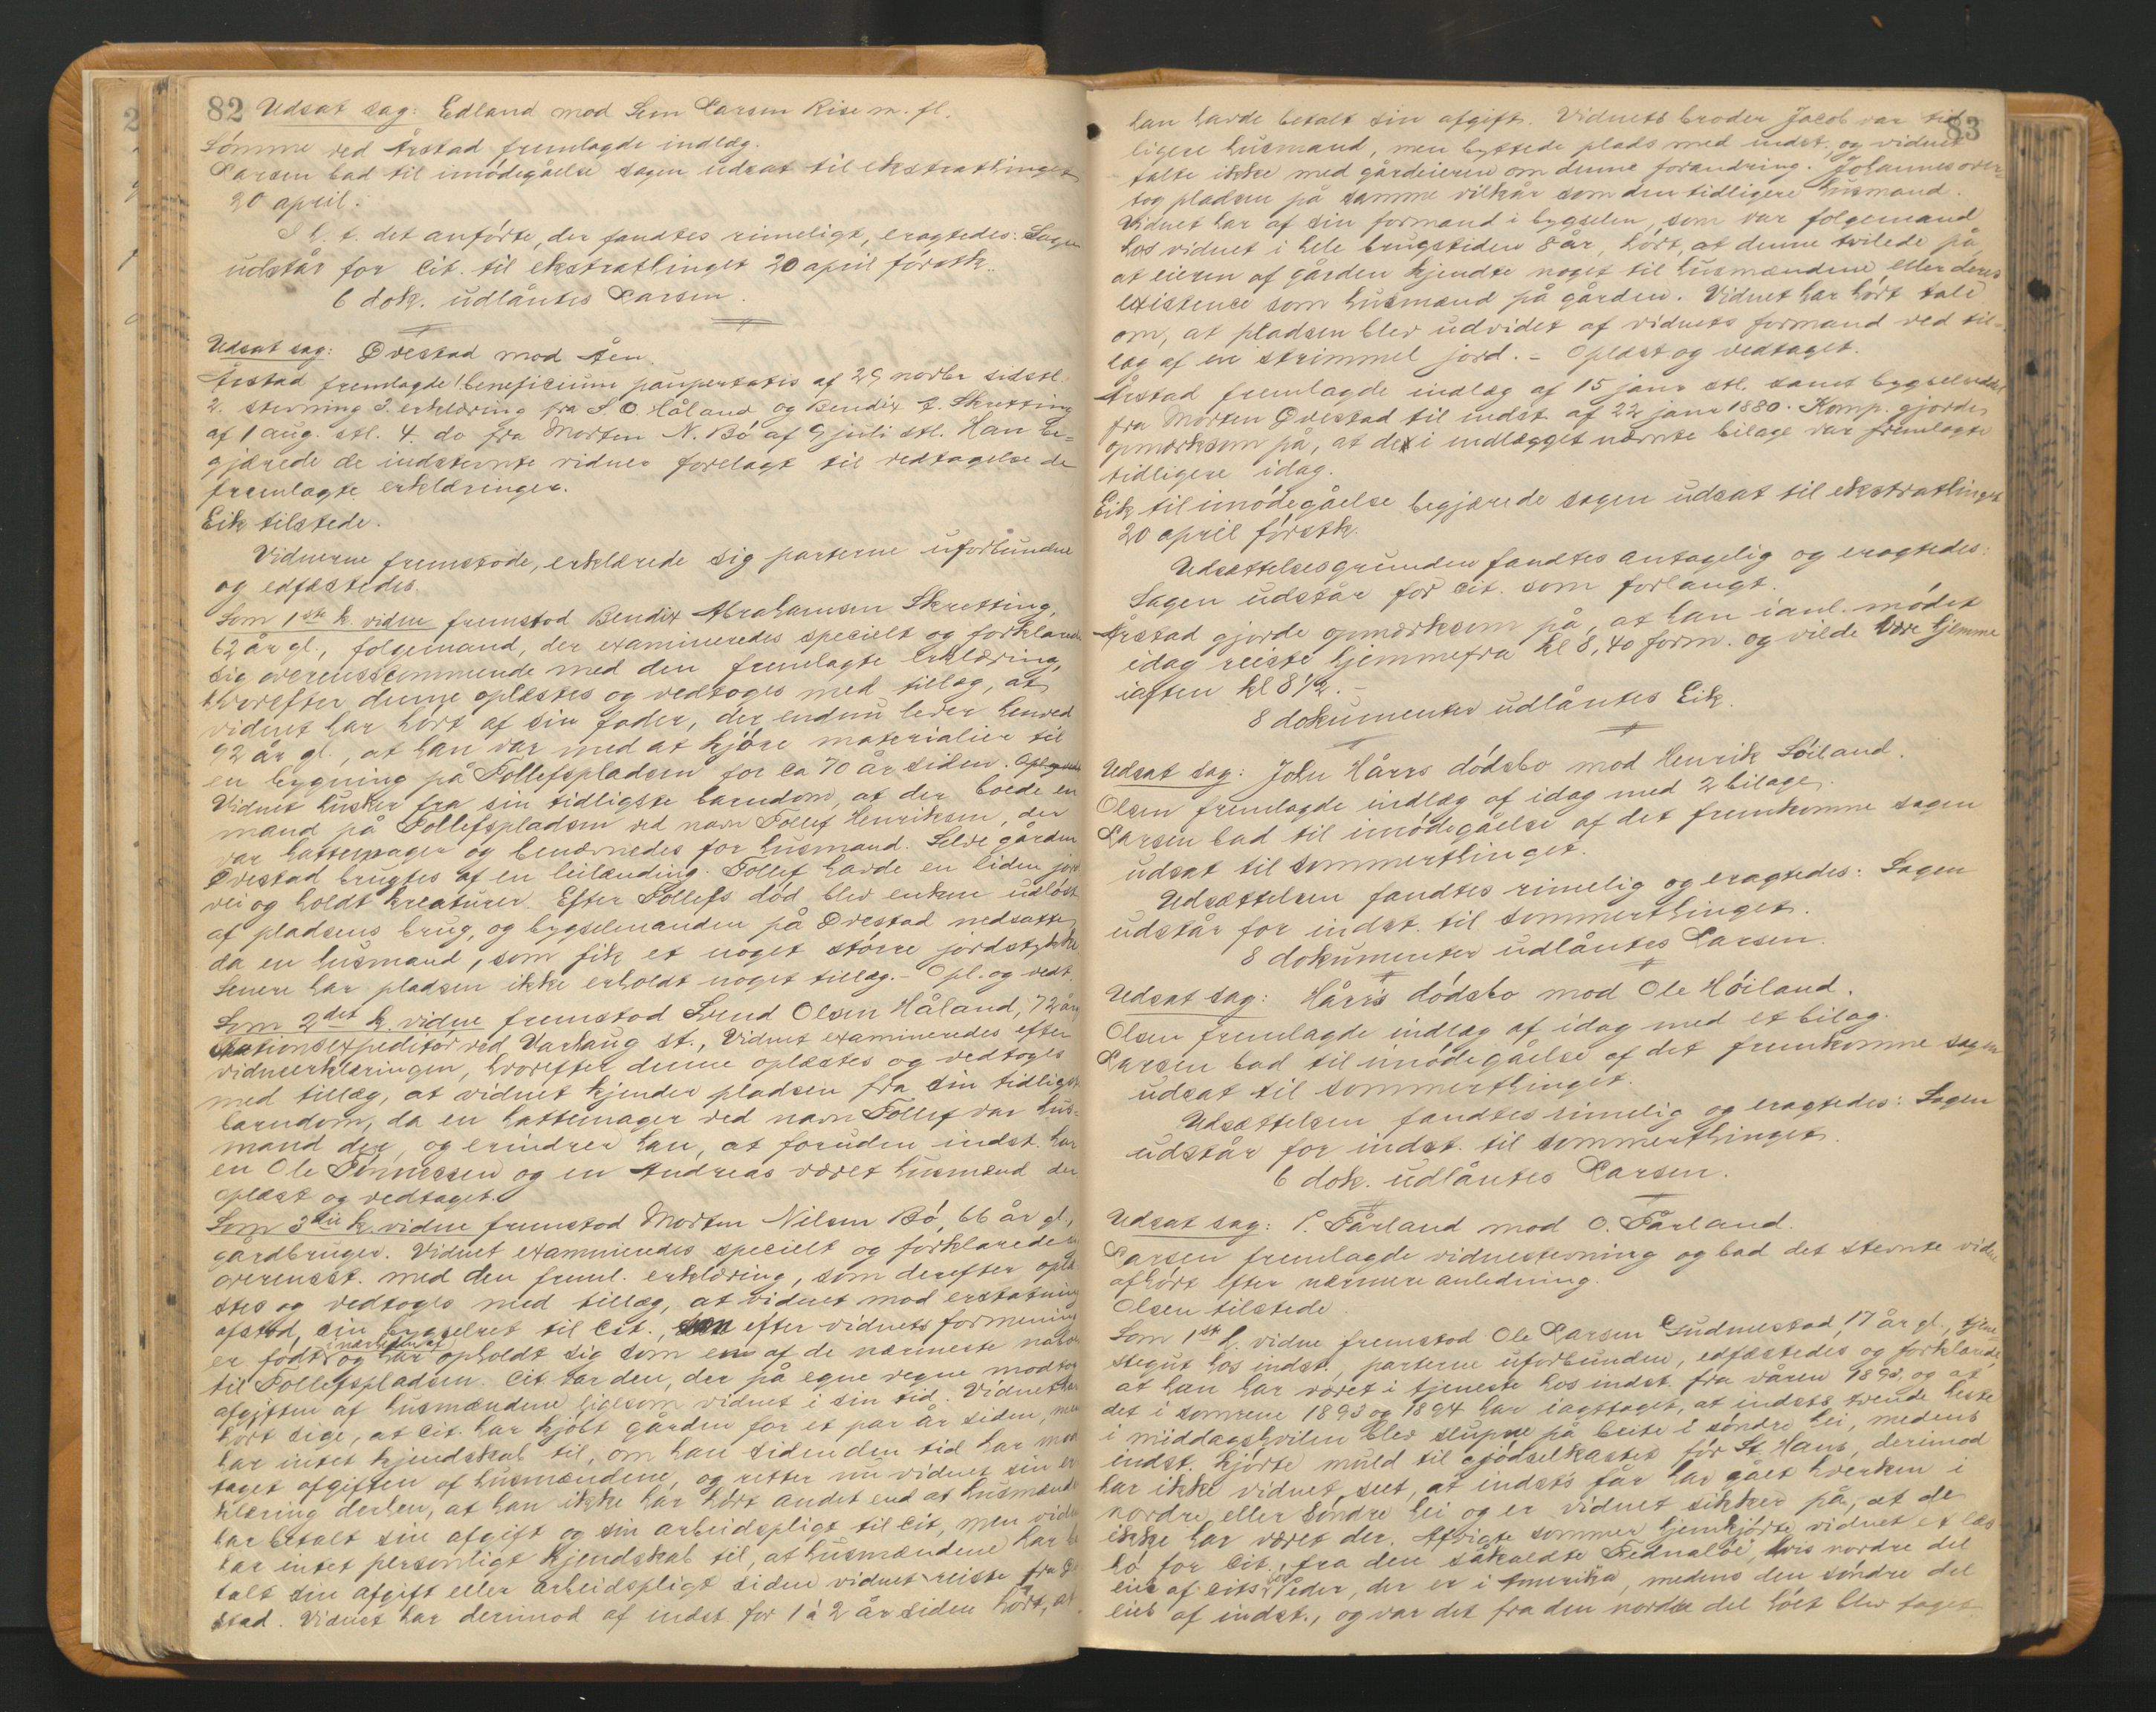 82 Udsat sag: Edland mod Sem Larsen Rise m. fl.
Sömme ved Årstad fremlagde indlæg.
Larsen bad til imödegåelse sagen udsat til ekstrathinget
20 april.
I h. t. det anförte, der fandtes rimeligt, eragtedes: Sagen
udstår for Cit. til ekstrathinget 20 april förstk.
6 dok. udlåntes Larsen.
Udsat sag: Ovestad mod Åen.
Årstad fremlagde 1 beneficium paupertatis af 29 novbr sidstl.
2. stevning 3. erklæring fra S. O. Håland og Bendix A. Skretting
af 1 aug. stl. 4. do fra Morten N. Bö af 9 juli stl. Han be-
gjærede de indstevnte vidner forelagt til vedtagelse de
fremlagte erklæringer.
Eik tilstede.
Vidnerne fremstode, erklærede sig parterne uforbundne
og edfæstedes.
Som 1ste h. vidne fremstod Bendix Abrahamsen Skretting,
62 år gl., folgemand, der examineredes specielt og forklarede
sig overensstemmende med den fremlagte erklæring,
hvorefter denne oplæstes og vedtoges med tillæg, at
vidnet har hört af sin fader, der endnu lever henved
92 år gl., at han var med at kjöre materialier til
en bygning på Tollefspladsen for ca 70 år siden.
Vidnet husker fra sin tidligste barndom, at der boede en
mand på Tollefspladsen ved navn Tollef Henriksen, der
var hattemager og benævnedes for husmand. Selve gården
Ovestad brugtes af en leilænding. Tollef havde en liden jord
vei og holdt kreaturer. Efter Tollefs död blev enken udlöst
af pladsens brug, og bygselmanden på Ovestad nedsatte
da en husmand, som fik et noget större jordstykke
Senere har pladsen ikke erholdt noget tillæg. - Opl. og vedt.
Som 2det h. vidne fremstod Svend Olsen Håland, 72 år,
stationsexpeditör ved Varhaug st., Vidnet examineredes efter
vidneerklæringen, hvorefter denne oplæstes og vedtoges
med tillæg, at vidnet kjender pladsen fra sin tidligst
barndom, da en hattemager ved navn Tollef var hus-
mand der, og erindrer han, at foruden indst. har
en Ole Tönnessen og en Andreas været husmænd der
oplæst og vedtaget.
Som 3die h. vidne fremstod Morten Nilsen Bö, 66 år gl,
gårdbruger. Vidnet examineredes specielt og forklarede
overensst. med den freml. erklæring, som derefter oplæ
stes og vedtoges med tillæg, at vidnet mod erstatning
afstod sin bygselret til Cit., efter vidnets formening
er födt i nærheden af og har opholdt sig som en af de nærmeste nabo
til Tollefspladsen. Cit. var den, der på egne vegne modtog
afgiften af husmændene ligesom vidnet i sin tid. Vidnet har
hört sige, at Cit. har kjöbt gården for et par år siden, men
har intet kjendskab til, om han siden den tid har mod
taget afgiften af husmændene, og retter nu vidnet sin er
klæring derhen, at han ikke har hört andet end at husmænde
har betalt sin afgift og sin arbeidspligt til Cit, men vidnet
har intet personligt kjendskab til, at husmændene har be
talt sin afgift eller arbeidspligt siden vidnet reiste fra Ove
stad. Vidnet har derimod af indst. for 1 à 2 år siden hört, at
83
han havde betalt sin afgift. Vidnets broder Jacob var tid
ligere husmand, men byttede plads med indst., og vidnet
talte ikke med gårdeieren om denne forandring. Johannes over-
tog pladsen på samme vilkår som den tidligere husmand.
Vidnet har af sin formand i bygselen, som var folgemand
hos vidnet i hele brugstiden 8 år, hört, at denne tvilede på
at eieren af gården kjendte noget til husmændene eller deres
existence som husmænd på gården. Vidnet har hört tale
om, at pladsen blev udvidet af vidnets formand ved til-
læg af en strimmel jord. - Oplæst og vedtaget.
Årstad fremlagde indlæg af 15 janr stl. samt bygselseddel
fra Morten Ovestad til indst. af 22 janr 1880. Komp. gjordes
opmærksom på, at det i indlægget nævnte bilage var fremlagte
tidligere idag.
Eik til imödegåelse begjærede sagen udsat til ekstrathinget
20 april förstk.
Udsættelsesgrunden fandtes antagelig og eragtedes:
Sagen udstår for cit. som forlangt.
Årstad gjorde opmærksom på, at han ianl. mödet
idag reiste hjemmefra kl 8,40 form. og vilde være hjemme
iaften kl 8 1/2. -
8 dokumenter udlåntes Eik.
Udsat sag: John Hårrs dödsbo mod Henrik Söiland.
Olsen fremlagde indlæg af idag med 2 bilage.
Larsen bad til imödegåelse af det fremkomne sagen
udsat til sommerthinget.
Udsættelsen fandtes rimelig og eragtedes: Sagen
udstår for indst. til sommerthinget.
8 dokumenter udlåntes Larsen.
Udsat sag: Hårrs dödsbo mod Ole Höiland.
Olsen fremlagde indlæg af idag med et bilag.
Larsen bad til imödegåelse af det fremkomne sagen
udsat til sommerthinget.
Udsættelsen fandtes rimelig og eragtedes: Sagen
udstår for indst. til sommerthinget.
6 dok. udlåntes Larsen.
Udsat sag: P. Tårland mod O. Tårland.
Larsen fremlagde vidnestevning og bad det stevnte vidne
afhört efter nærmere anledning.
Olsen tilstede.
Som 1ste h. vidne fremstod Ole Larsen Gudmestad, 17 år gl., tjene-
stegut hos indst., parterne uforbunden, edfæstedes og forklarede,
at han har været i tjeneste hos indst. fra våren 1893, og at
det i somrene 1893 og 1894 har iagttaget, at indsts tvende heste
i middagshvilen blev slupne på beite i söndre hei, medens
indst. kjörte muld til gjödselkastet för St. Hans, derimod
har ikke vidnet seet, at indsts får har gået hverken i
nordre eller söndre hei og er vidnet sikker på, at de
ikke har været der. Afvigte sommer hjemkjörte vidnet et læs
hö for Cit. fra den såkaldte Frednalöe, hvis nordre del
eies af Cits, der er i Amerika, medens den söndre del
eies af indst., og var det fra den nordre del höet blev taget